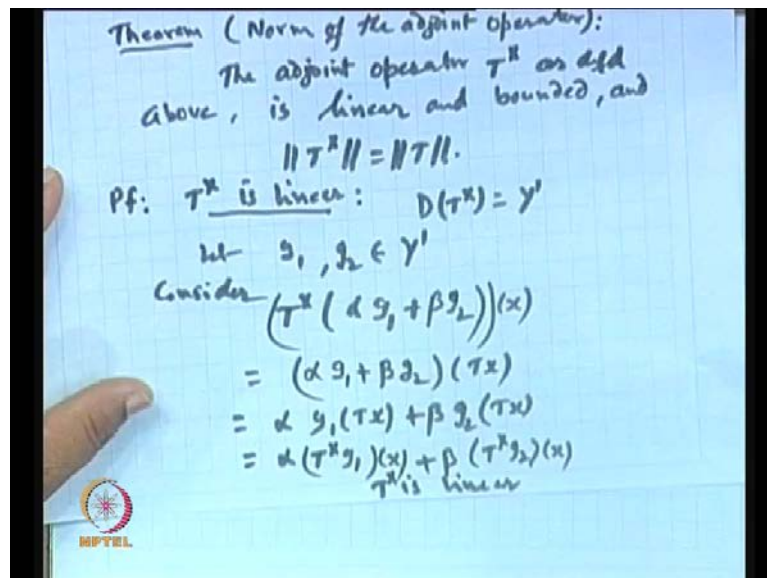 Theorem (Norm of the adjoint operator):
The adjoint operator T^× as dfd
above, is linear and bounded, and
||T^×|| = ||T||.
Pf: T^× is linear: D(T^×) = Y'
let g₁, g₂ ∈ Y'
Consider (T^×(αg₁ + βg₂))(x)
= (αg₁ + βg₂)(Tx)
= αg₁(Tx) + βg₂(Tx)
= α(T^×g₁)(x) + β(T^×g₂)(x)
T^× is linear
NPTEL